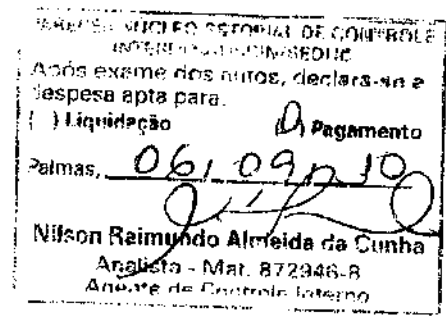 NÚCLEO SETORIAL DE CONTROLE
Após exame dos autos, declara-se a
despesa apta para:
( ) Liquidação Pagamento
Palmas, 06, 09, 10
Nilson Raimundo Almeida da Cunha
Analista - Mat. 872946-8
Agente de Controle Interno